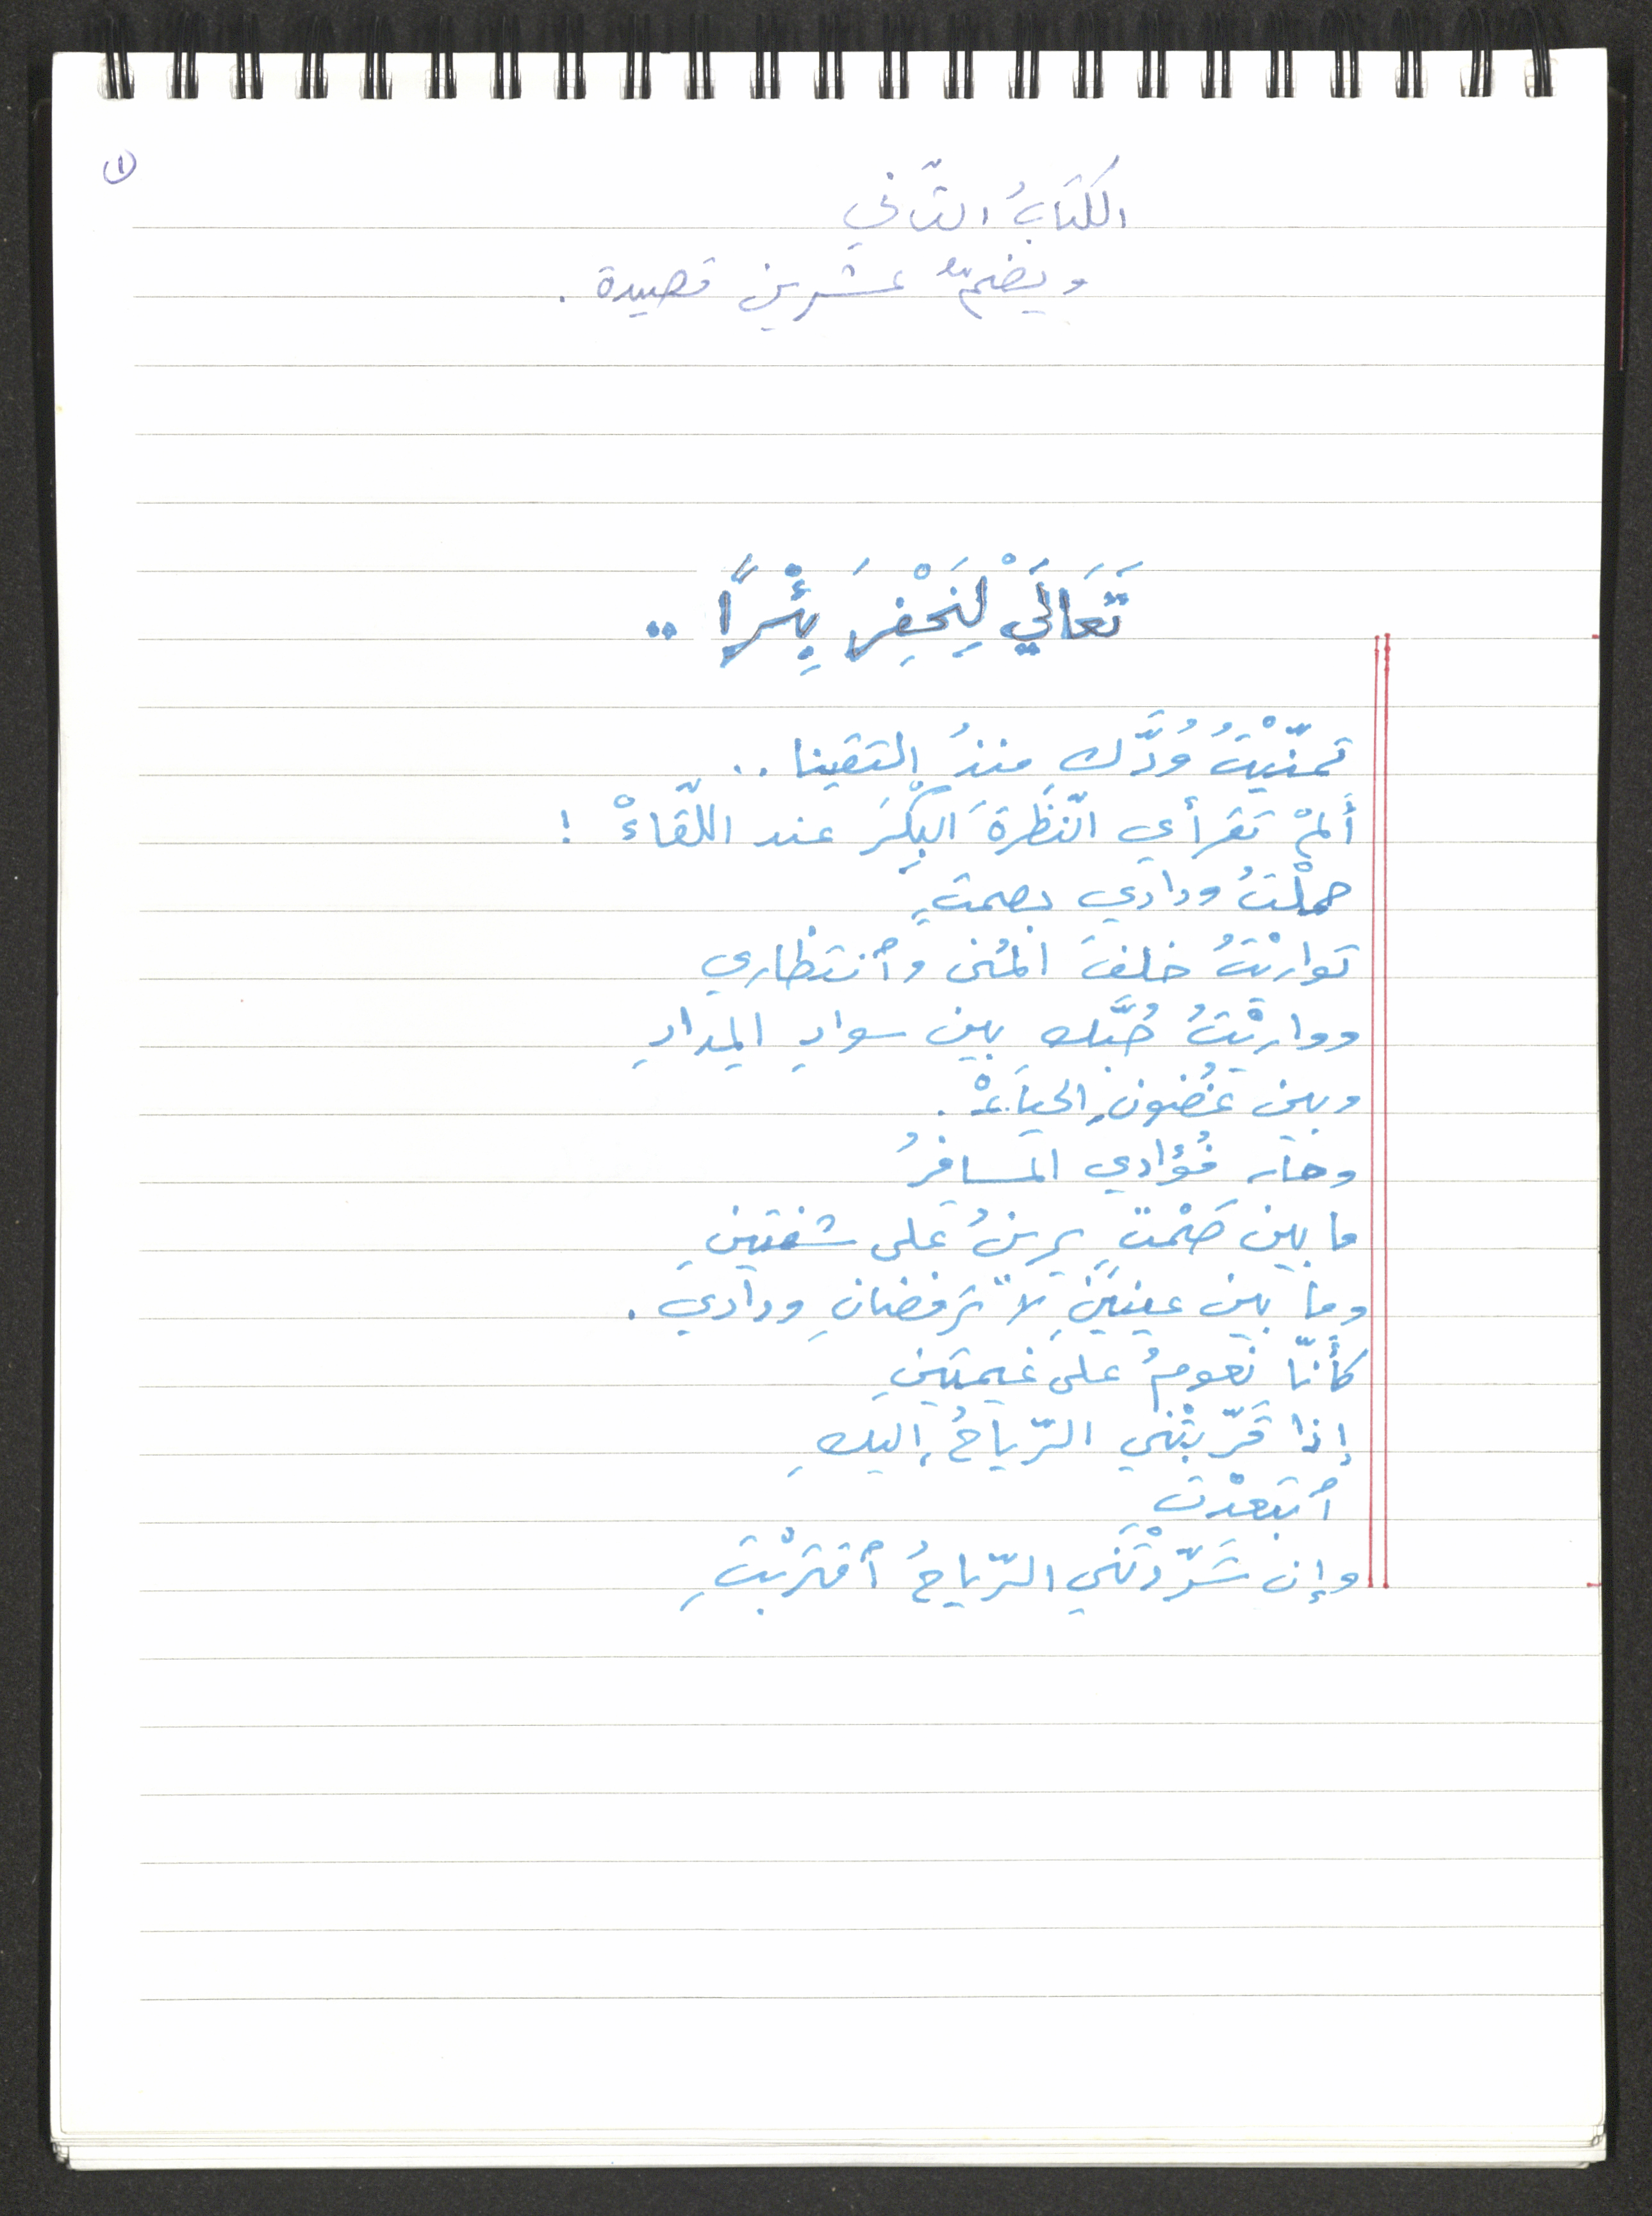 ١
الكتابُ الثّاني
ويضمّ عشرين قصيدة .
تَعَالَيْ لِنَحْفِرَ بِئْرًا ..
تمنّيْتُ وُدَّك منذُ التقينا ..
أَلمْ تقرأي النّظرةَ البِكْرَ عند اللّقاءْ !
حملْتُ ودادي بصمتٍ
تواريْتُ خلفَ المُنى وٱنتظاري
وواريْتُ حُبَّك بين سوادِ المِدادِ
وبين غُضونِ الحياءْ .
وحار فُؤادي المسافرُ
ما بين صَمْتٍ يرينُ على شفتينِ
وما بين عينَيْنِ لا ترفضانِ ودادي .
كأنّا نعومُ على غيمتينِ
إذا قرّبتْني الرّياحُ إليكِ
ٱبتعدْت
وإن شَرّدتْني الرّياحُ ٱقتربْتِ